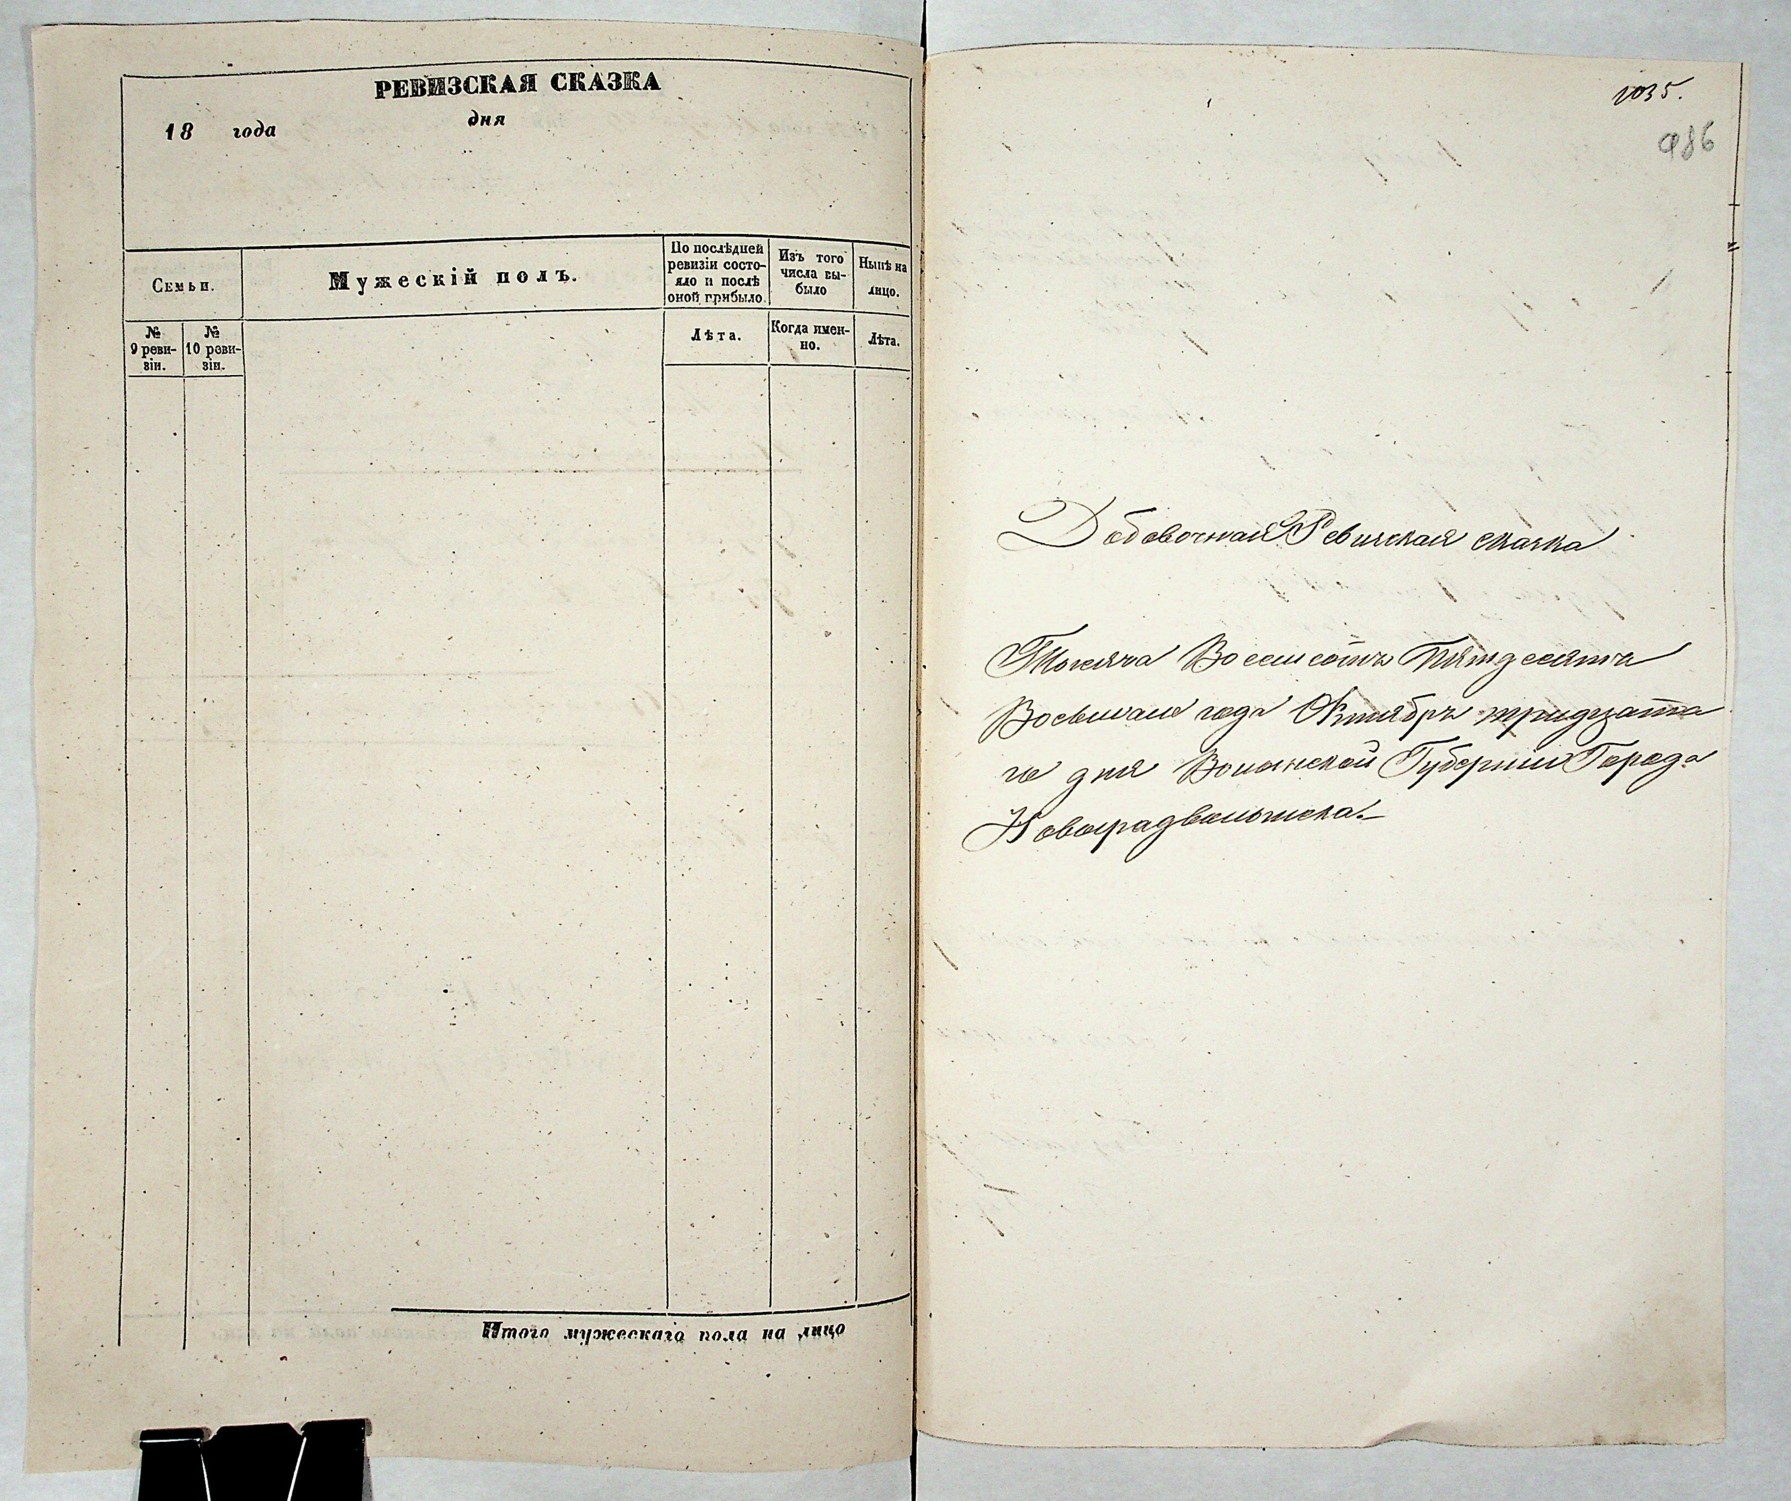 РЕВИЗСКАЯ СКАЗКА
18 года дня
Семьи.
Мужескій полъ.
По послѣдней ревизіи состо-
яло и послѣ
оной прибыло
Изъ того
числа вы-
было
Нынѣ на
лицо.
№
9 реви-
зіи.
№
10 реви-
зіи.
Лѣта.
Когда имен-
но.
Лѣта.
Итого мужескаго пола на лицо
1035.
986
Добовочная Ревизская сказка
Тысяча Восемсотъ Пятдесятъ
Восьмаго года Октября тридцата
го дня Волынской Губерніи Города
Новоградволынска.